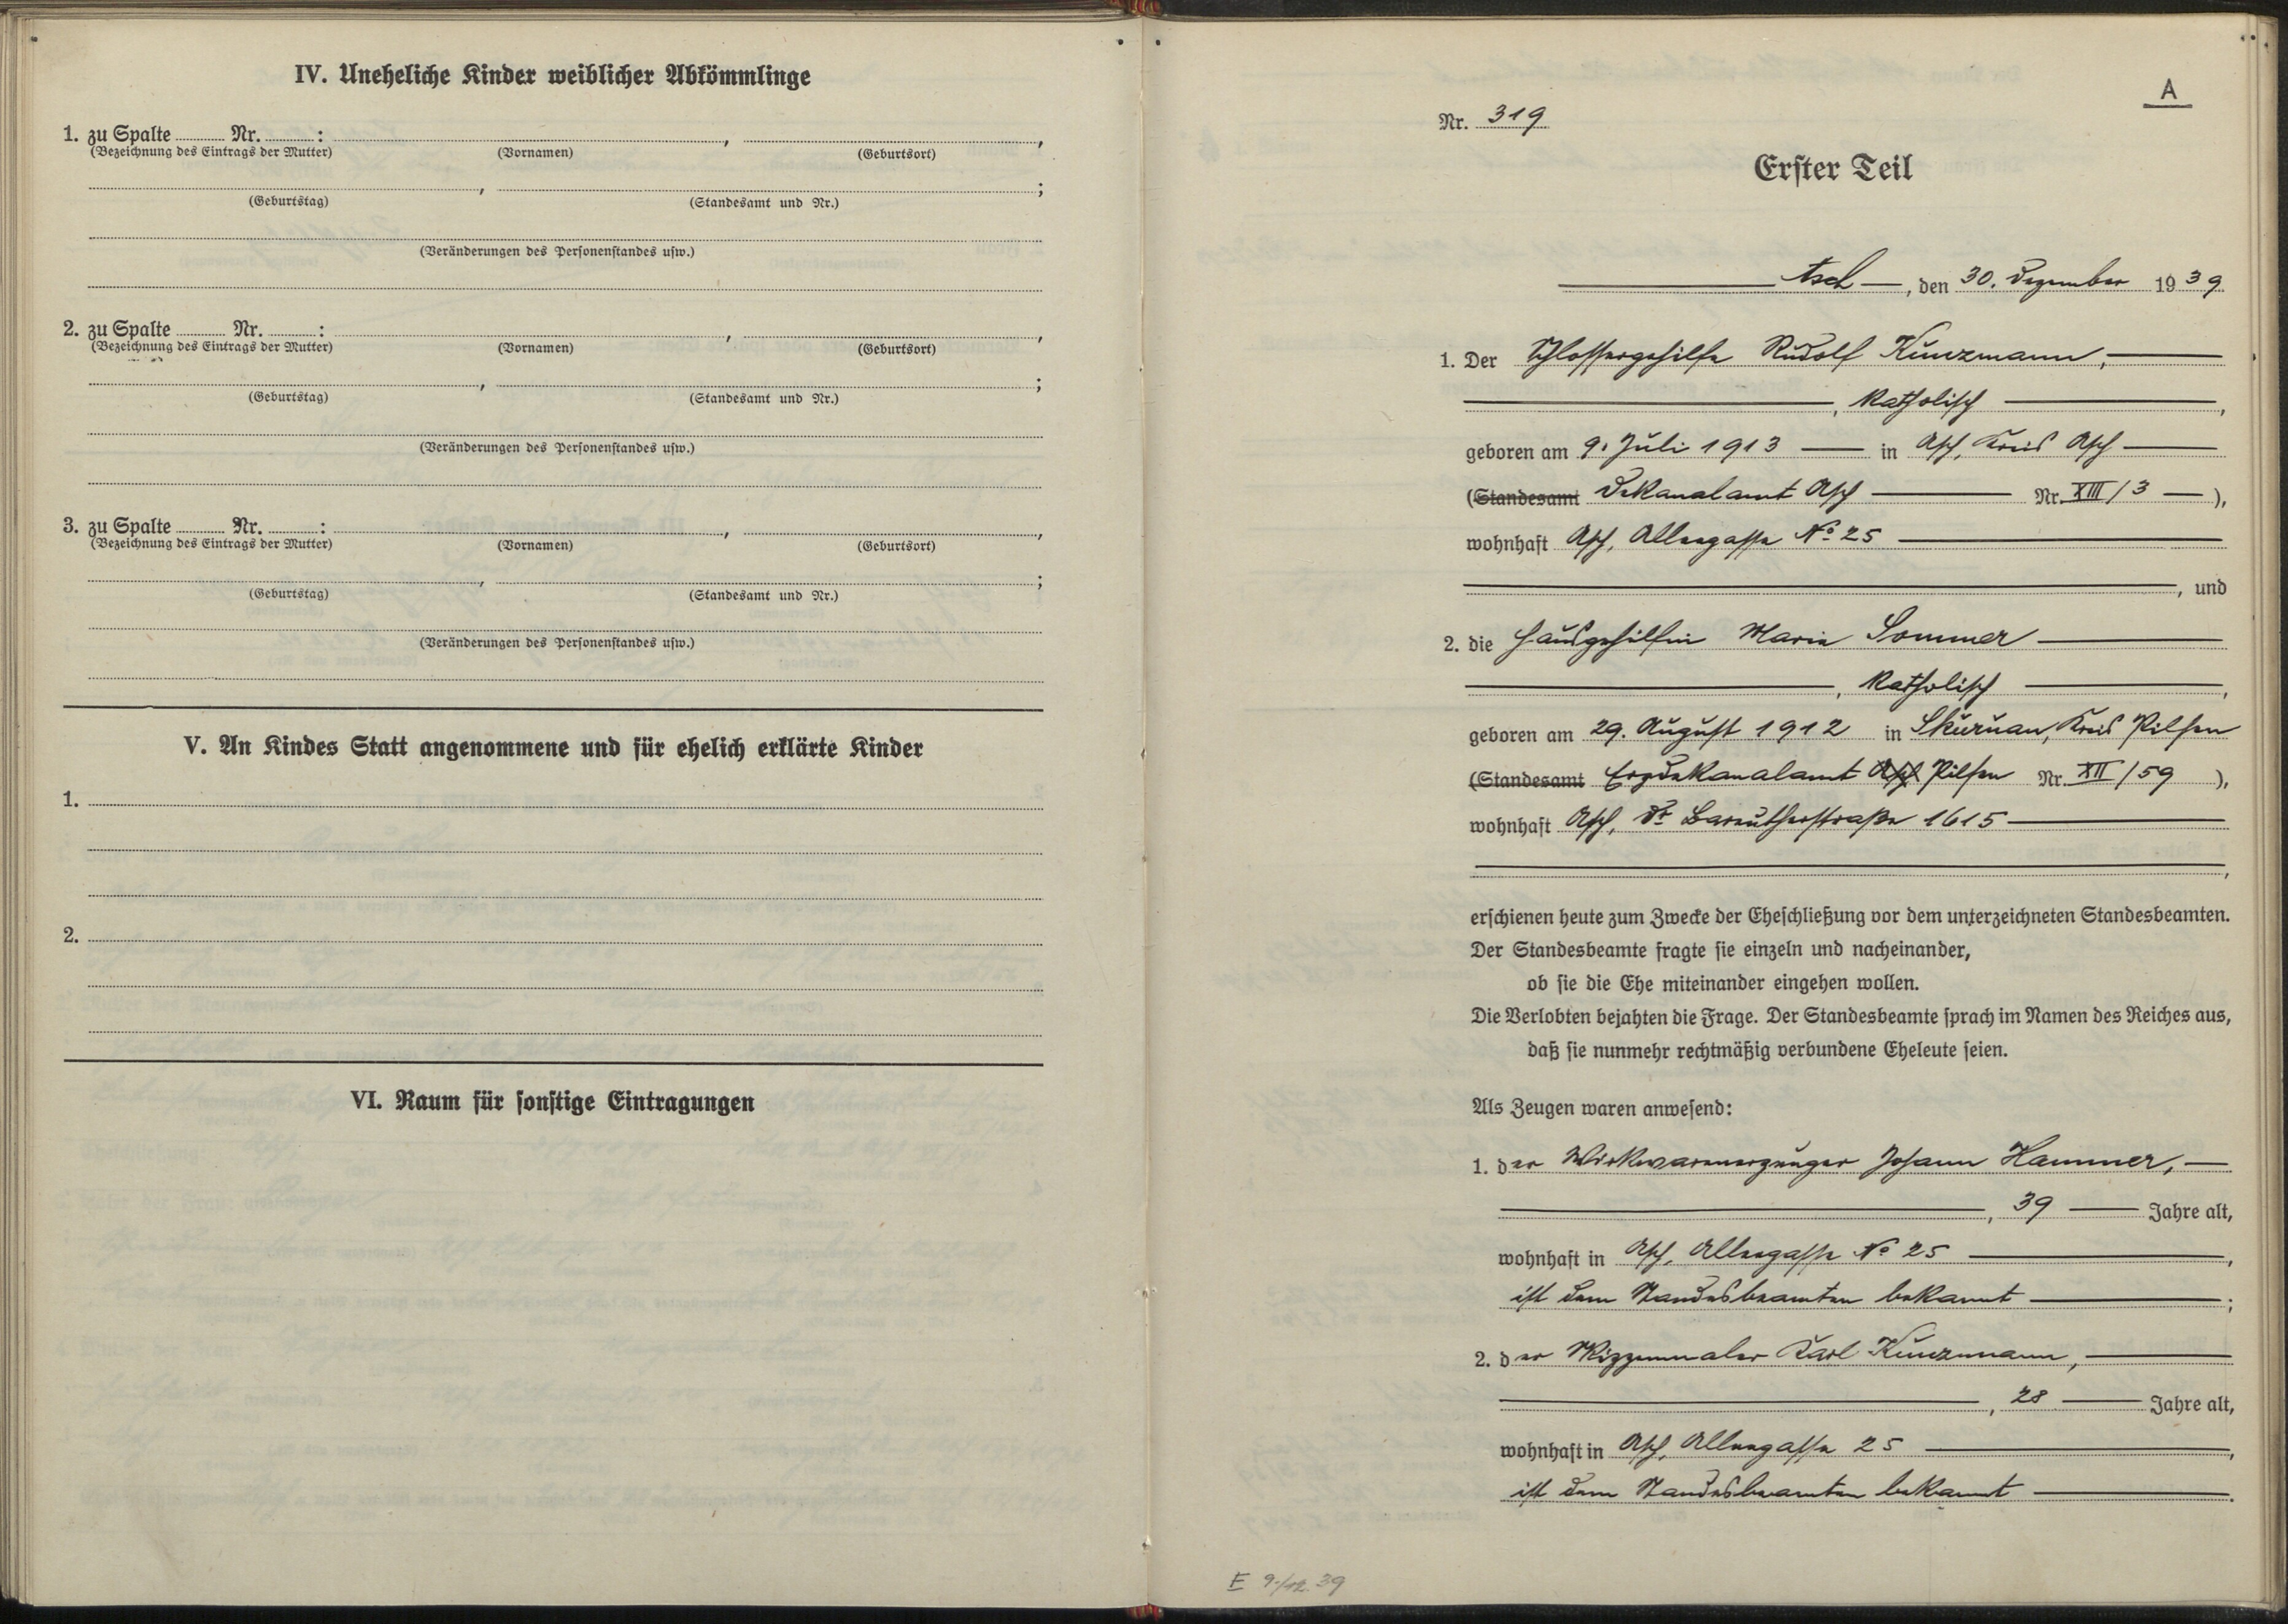 IV. Uneheliche Kinder weiblicher Abkömmlinge
1. zu Spalte ........ Nr. ........ : , ,
(Bezeichnung des Eintrags der Mutter) (Vornamen) (Geburtsort)
, ;
(Geburtstag) (Standesamt und Nr.)
(Veränderungen des Personenstandes usw.)
2. zu Spalte ........ Nr. ........ : , ,
(Bezeichnung des Eintrags der Mutter) (Vornamen) (Geburtsort)
, ;
(Geburtstag) (Standesamt und Nr.)
(Veränderungen des Personenstandes usw.)
3. zu Spalte ........ Nr. ........ : , ,
(Bezeichnung des Eintrags der Mutter) (Vornamen) (Geburtsort)
, ;
(Geburtstag) (Standesamt und Nr.)
(Veränderungen des Personenstandes usw.)
V. An Kindes Statt angenommene und für ehelich erklärte Kinder
1.
2.
VI. Raum für sonstige Eintragungen
A
Nr. 319
Erster Teil
Asch, den 30. Dezember 1939
1. Der Schlossergehilfe Rudolf Künzmann,
, katholisch ,
geboren am 9. Juli 1913 in Asch, Kreis Asch
(Standesamt Dekanalamt Asch Nr. XIII/3 ),
wohnhaft Asch, Alleegasse No 25
, und
2. die Hausgehilfin Marie Sommer
, katholisch ,
geboren am 29. August 1912 in Skurnan, Kreis Pilsen
(Standesamt Erzdekanalamt Asch Pilsen Nr. XII/59 ),
wohnhaft Asch, Dr Bareutherstraße 1615
,
erschienen heute zum Zwecke der Eheschließung vor dem unterzeichneten Standesbeamten.
Der Standesbeamte fragte sie einzeln und nacheinander,
ob sie die Ehe miteinander eingehen wollen.
Die Verlobten bejahten die Frage. Der Standesbeamte sprach im Namen des Reiches aus,
daß sie nunmehr rechtmäßig verbundene Eheleute seien.
Als Zeugen waren anwesend:
1. der Wirkwarenerzeuger Johann Hammer,
, 39 Jahre alt,
wohnhaft in Asch, Alleegasse No 25 ,
ist dem Standesbeamten bekannt ;
2. der Skizzenmaler Karl Künzmann,
, 28 Jahre alt,
wohnhaft in Asch, Alleegasse 25 ,
ist dem Standesbeamten bekannt .
E 9./12. 39